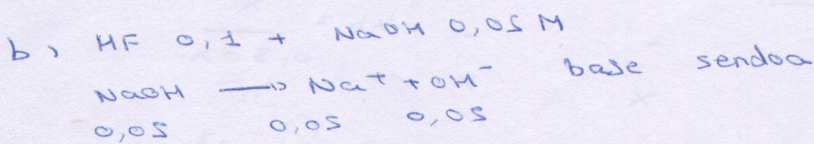 b) HF 0,1 + NaOH 0,05 M
NaOH → Na⁺ + OH⁻ base sendoa
0,05 0,05 0,05